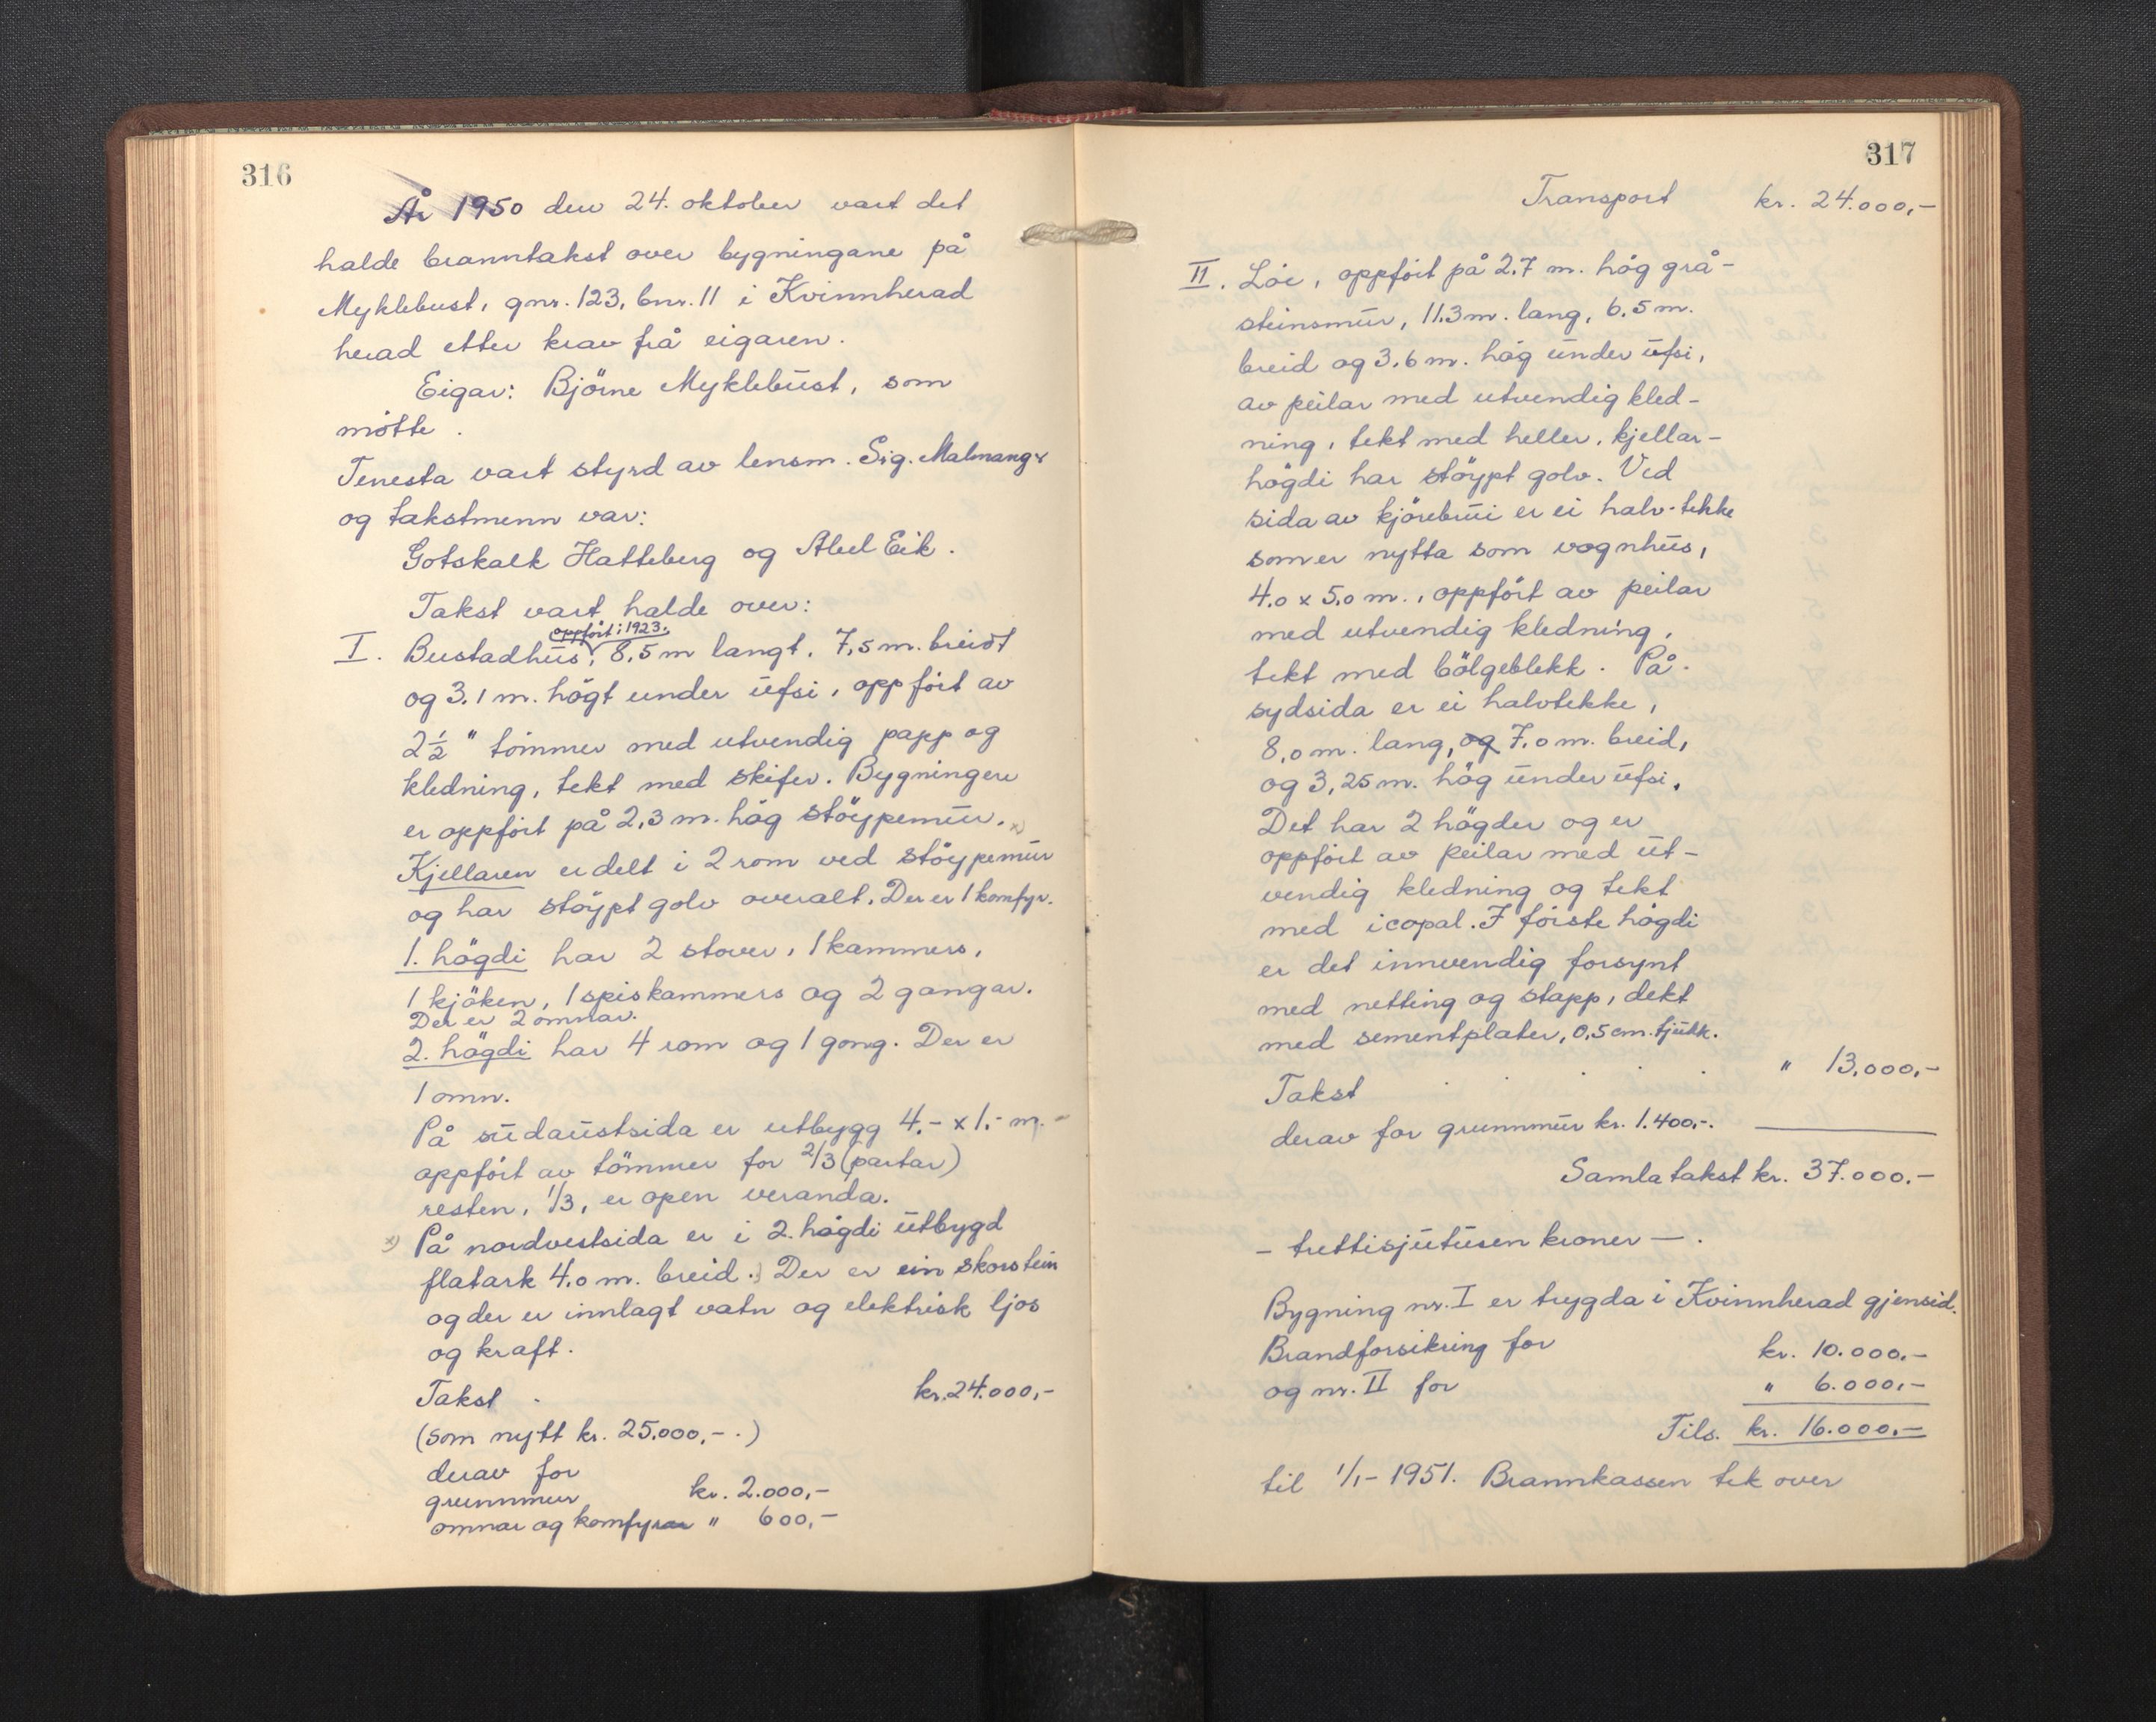 316
År 1950 den 24. oktober vart det
halde branntakst over bygningane på
Myklebust, gnr. 123, bnr. 11 i Kvinnherad
herad etter krav frå eigaren.
Eigar: Björne Myklebust, som
mötte.
Tenesta vart styrd av lensm. Sig. Malmanger
og takstmenn var:
Gotskalk Hatteberg og Abel Eik.
Takst vart halde over:
oppfört i 1923.
I. Bustadhus, 8,5 m langt, 7,5 m. breidt
og 3.1 m. högt under ufsi, oppfört av
2½" tömmer med utvendig papp og
kledning, tekt med skifer. Bygningen
er oppfört på 2,3 m. hög stöypemur. x)
Kjellaren er delt i 2 rom ved stöypemur
og har stöypt golv overalt. Der er 1 komfyr.
1. högdi har 2 stover, 1 kammers,
1 kjöken, 1 spiskammers og 2 gangar.
Der er 2 omnar.
2. högdi har 4 rom og 1 gong. Der er
1 omn.
På sudaustsida er utbygg 4.- x 1.- m.-
oppfört av tömmer for 2/3 (partar)
resten, 1/3, er open veranda.
x) På nordvestsida er i 2. högdi utbygd
flatark 4.0 m. breid.) Der er ein skorstein
og der er innlagt vatn og elektrisk ljos
og kraft.
Takst . kr. 24.000,-
(som nytt kr. 25.000,-.)
derav for
grunnmur kr. 2.000,-
omnar og komfyrar " 600,-
317
Transport kr. 24.000,-
II. Löe, oppfört på 2.7 m. hög grå-
steinsmur, 11.3 m. lang, 6.5 m.
breid og 3.6 m. hög under ufsi,
av peilar med utvendig kled-
ning, tekt med heller, kjellar-
högdi har stöypt golv. Ved
sida av kjörebrui er ei halv-tekke
som er nytta som vognhus,
4.0 x 5.0 m., oppfört av peilar
med utvendig kledning,
tekt med bölgeblekk. På
sydsida er ei halvtekke,
8,0 m. lang, og 7.0 m. breid,
og 3,25 m. hög under ufsi.
Det har 2 högder og er
oppfört av peilar med ut-
vendig kledning og tekt
med icopal. I förste högdi
er det innvendig forsynt
med netting og stapp, dekt
med sementplater, 0,5 cm. tjukk.
Takst . . . " 13.000,-
derav for grunnmur kr. 1.400,-.
Samla takst kr. 37.000.-
- trettisjutusen kroner -.
Bygning nr. I er trygda i Kvinnherad gjensid.
Brandforsikring for kr. 10.000.-
og nr. II for " 6.000,-
Tils. kr. 16.000.-
til 1/1- 1951. Brannkassen tek over